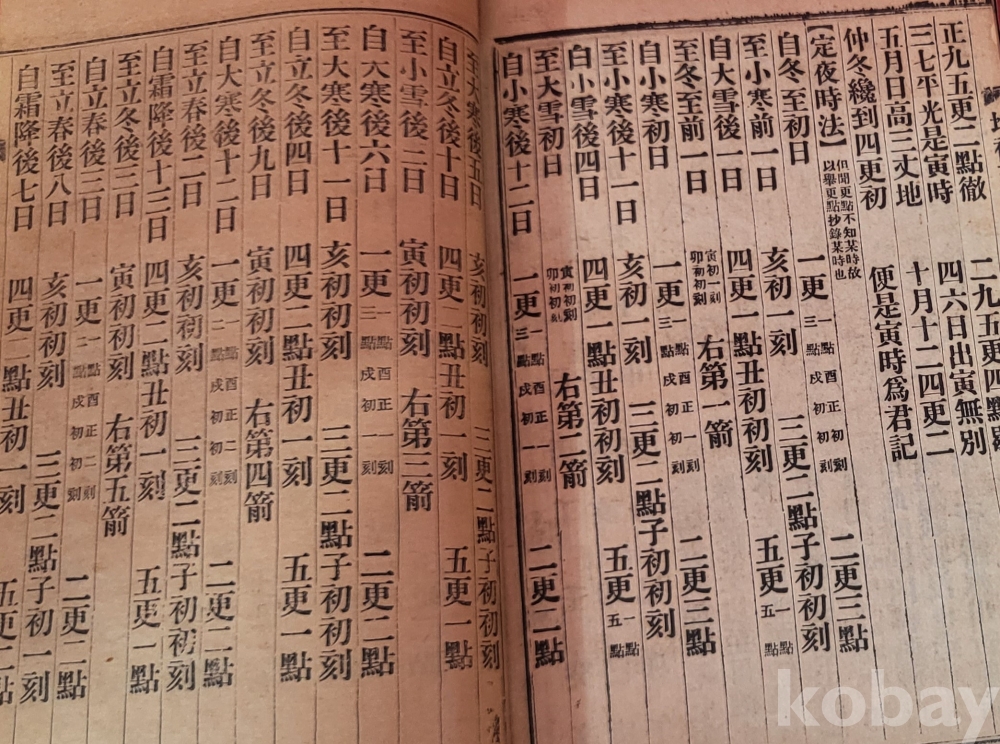 正九五更二點徹 二九五更四點
三七平光是寅時 四六日出寅無別
五月日高三丈地 十月十二四更二
仲冬纔到四更初 便是寅時爲君記
【定夜時法】 但聞更點不知某時故
以舉更點抄錄某時也
自冬至初日 一更 一點酉初一刻 三點戌初初刻 二更三點
至小寒前一日 亥初一刻 三更二點子初初刻
自大雪後一日 四更一點丑初一刻 五更 一點 五點
至冬至前一日 寅初一刻 卯初初刻 右第一箭
自小寒初日 一更 一點酉正初刻 三點戌初一刻 二更三點
至小寒後十一日 亥初一刻 三更二點子初初刻
自小雪後四日 四更一點丑初初刻 五更 一點 五點
至大雪初日 寅初初刻 卯初初刻 右第二箭
自小寒後十二日 一更 一點酉正一刻 三點戌初一刻 二更二點
至大寒後五日 亥初初刻 三更二點子初初刻
自立冬後十日 四更二點丑初一刻 五更一點
至小雪後二日 寅初初刻 右第三箭
自大寒後六日 一更 一點酉正一刻 二點戌初一刻 二更二點
至大寒後十一日 亥初初刻 三更二點子初一刻
自立冬後四日 四更二點丑初一刻 五更一點
至立冬後九日 寅初初刻 右第四箭
自大寒後十二日 一更 一點酉正二刻 二點戌初初刻 二更二點
至立春後二日 亥初初刻 三更二點子初初刻
自霜降後十三日 四更二點丑初一刻 五更一點
至立冬後三日 寅初初刻 右第五箭
自立春後三日 一更 一點酉正二刻 二點戌初初刻 二更二點
至立春後八日 亥初初刻 三更二點子初一刻
自霜降後七日 四更二點丑初一刻 五更二點
kobay